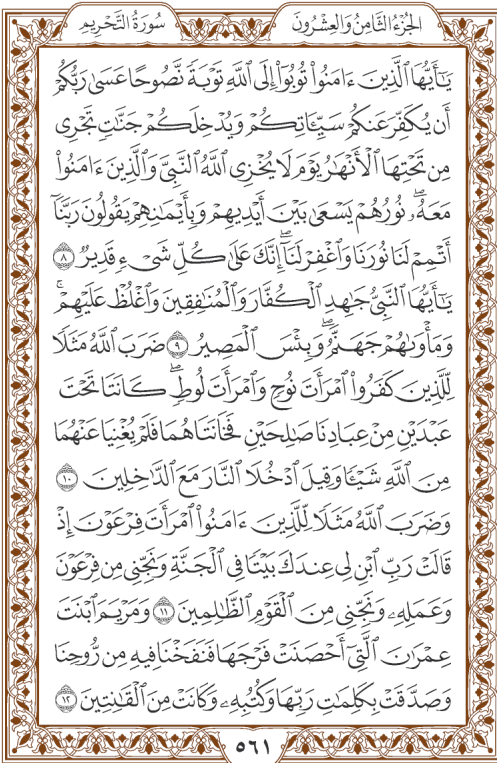 الجُزْءُ الثَّامِنُ وَالعِشْرُونَ
سُورَةُ التَّحْرِيمِ
يَٰٓأَيُّهَا ٱلَّذِينَ ءَامَنُواْ تُوبُوٓاْ إِلَى ٱللَّهِ تَوْبَةً نَّصُوحًا عَسَىٰ رَبُّكُمْ
أَن يُكَفِّرَ عَنكُمْ سَيِّـَٔاتِكُمْ وَيُدْخِلَكُمْ جَنَّٰتٍ تَجْرِى
مِن تَحْتِهَا ٱلْأَنْهَٰرُ يَوْمَ لَا يُخْزِى ٱللَّهُ ٱلنَّبِىَّ وَٱلَّذِينَ ءَامَنُواْ
مَعَهُۥۖ نُورُهُمْ يَسْعَىٰ بَيْنَ أَيْدِيهِمْ وَبِأَيْمَٰنِهِمْ يَقُولُونَ رَبَّنَآ
أَتْمِمْ لَنَا نُورَنَا وَٱغْفِرْ لَنَآۖ إِنَّكَ عَلَىٰ كُلِّ شَىْءٍ قَدِيرٌ ٨
يَٰٓأَيُّهَا ٱلنَّبِىُّ جَٰهِدِ ٱلْكُفَّارَ وَٱلْمُنَٰفِقِينَ وَٱغْلُظْ عَلَيْهِمْۚ
وَمَأْوَىٰهُمْ جَهَنَّمُۖ وَبِئْسَ ٱلْمَصِيرُ ٩ ضَرَبَ ٱللَّهُ مَثَلًا
لِّلَّذِينَ كَفَرُواْ ٱمْرَأَتَ نُوحٍ وَٱمْرَأَتَ لُوطٍۖ كَانَتَا تَحْتَ
عَبْدَيْنِ مِنْ عِبَادِنَا صَٰلِحَيْنِ فَخَانَتَاهُمَا فَلَمْ يُغْنِيَا عَنْهُمَا
مِنَ ٱللَّهِ شَيْـًٔا وَقِيلَ ٱدْخُلَا ٱلنَّارَ مَعَ ٱلدَّٰخِلِينَ ١٠
وَضَرَبَ ٱللَّهُ مَثَلًا لِّلَّذِينَ ءَامَنُواْ ٱمْرَأَتَ فِرْعَوْنَ إِذْ
قَالَتْ رَبِّ ٱبْنِ لِى عِندَكَ بَيْتًا فِى ٱلْجَنَّةِ وَنَجِّنِى مِن فِرْعَوْنَ
وَعَمَلِهِۦ وَنَجِّنِى مِنَ ٱلْقَوْمِ ٱلظَّٰلِمِينَ ١١ وَمَرْيَمَ ٱبْنَتَ
عِمْرَٰنَ ٱلَّتِىٓ أَحْصَنَتْ فَرْجَهَا فَنَفَخْنَا فِيهِ مِن رُّوحِنَا
وَصَدَّقَتْ بِكَلِمَٰتِ رَبِّهَا وَكُتُبِهِۦ وَكَانَتْ مِنَ ٱلْقَٰنِتِينَ ١٢
٥٦١